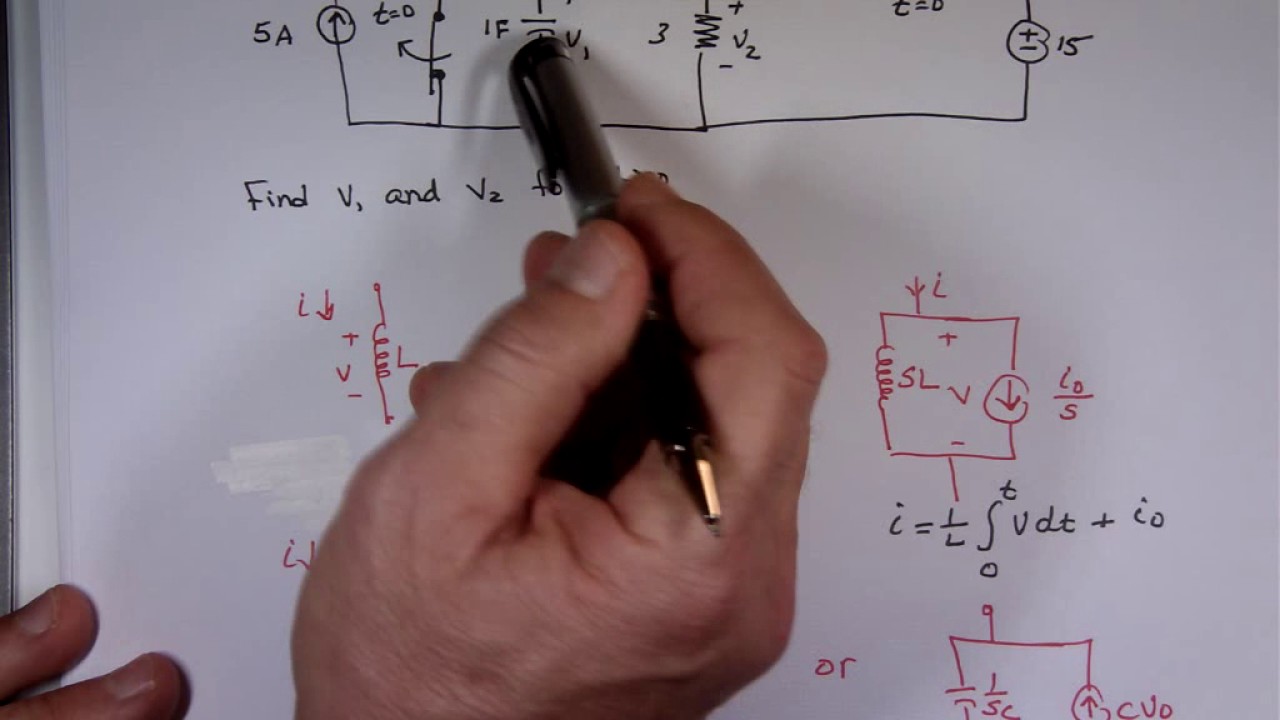 5A t=0 1F V₁ 3 + V₂ - t=0 ± 15
Find V₁ and V₂
i + V - L
i SL + V - i₀/s
i = 1/L ∫₀ᵗ v dt + i₀
i
or 1/SC CV₀